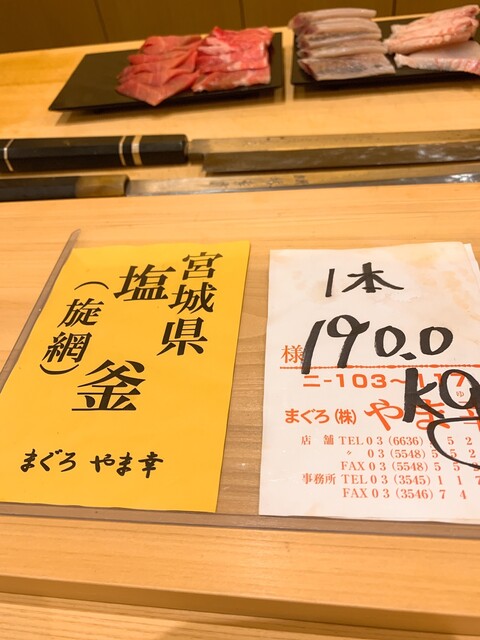 宮城県
塩釜
(旋網)
まぐろ やま幸
1本
190.0
kg
様
ニ-103~117
まぐろ(株)やま幸
店舗 TEL 03 (6636)
〃 03 (5548)
FAX 03 (5548)
事務所 TEL 03 (3545) 117
FAX 03 (3546) 74